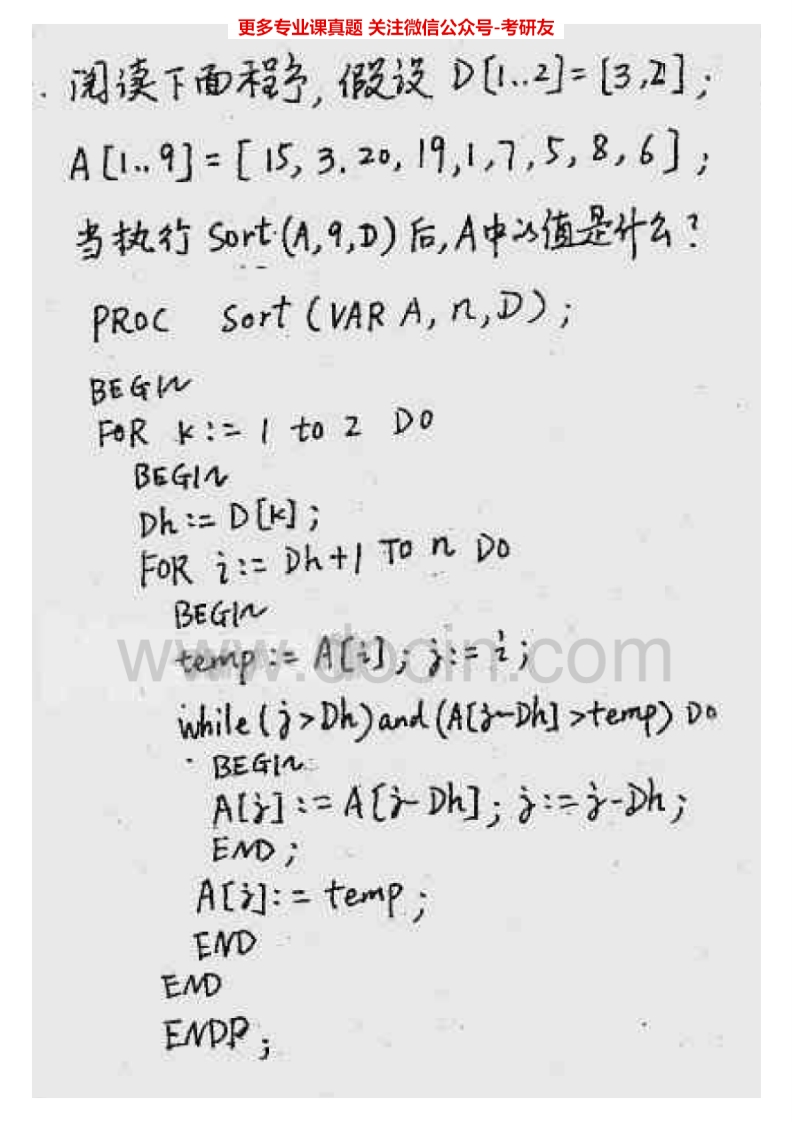 更多专业课真题 关注微信公众号-考研友
阅读下面程序, 假设 D[1..2]=[3,2];
A[1..9]=[15, 3. 20, 19, 1, 7, 5, 8, 6];
当执行 Sort(A,9,D)后, A中的值是什么?
PROC Sort (VAR A, n, D);
BEGIN
FOR k:= 1 to 2 DO
BEGIN
Dh := D[k];
FOR i:= Dh+1 TO n DO
BEGIN
www.docin.com
temp:= A[i]; j:= i;
while (j>Dh) and (A[j-Dh] >temp) DO
BEGIN
A[j] := A[j-Dh]; j:=j-Dh;
END;
A[j]:= temp;
END
END
ENDP;